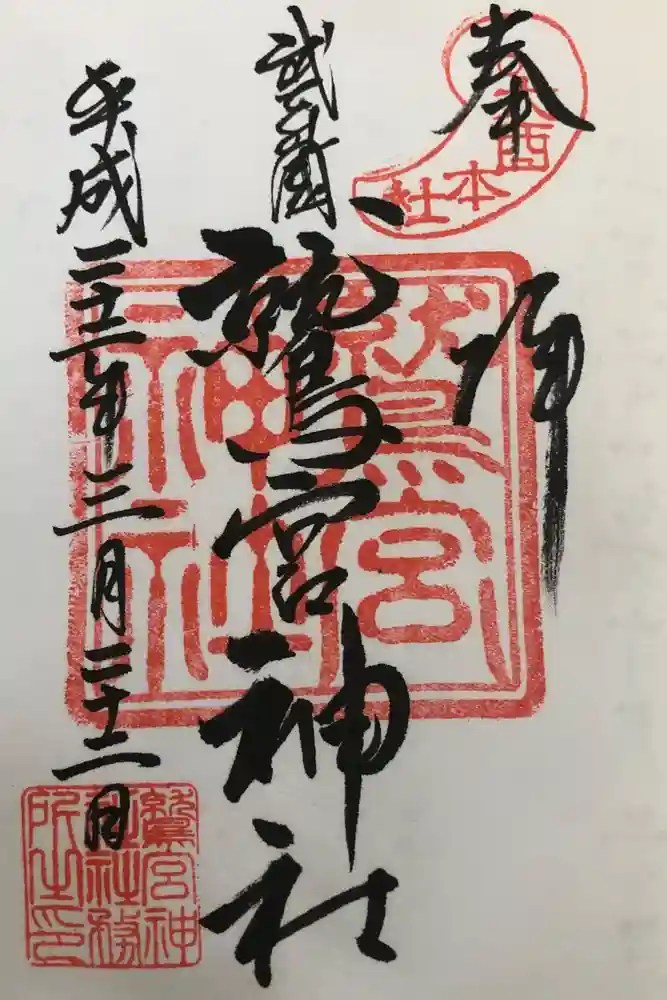 奉拝
大酉本社
武蔵
鷲宮神社
鷲宮
神社
平成二十二年三月二十二日
鷲宮神
社社務
所之印